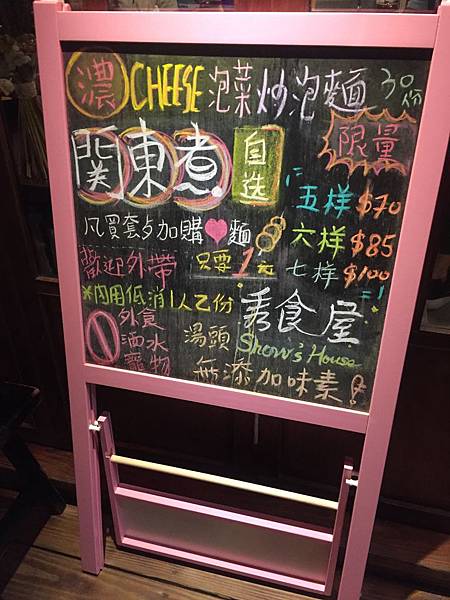 濃 CHEESE 泡菜炒泡麵 30份
限量
関東煮 自选
五样 $70
六样 $85
七样 $100
凡買套与加購♥麵
只要1元
歡迎外帶
*內用低消1人乙份
外食
酒水
寵物
秀食屋
Show's House
湯頭
無添加味素!